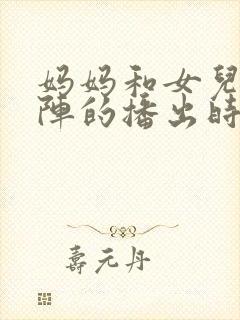 妈妈和女兒
陣的播出時
壽元丹